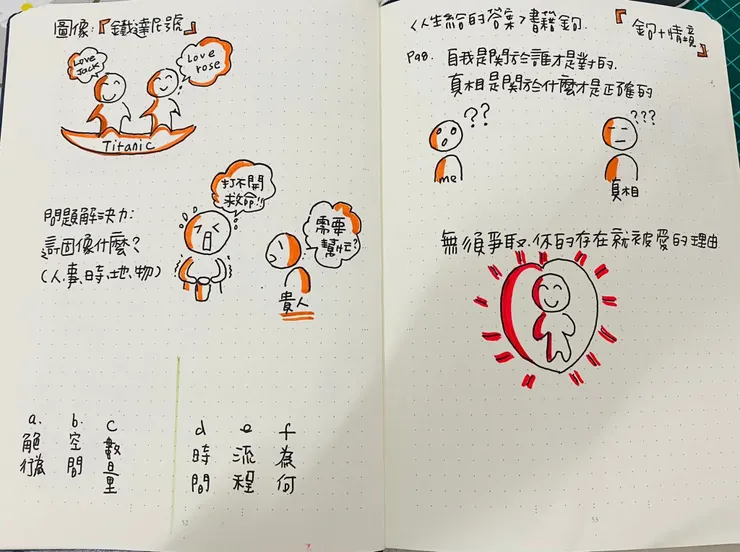 圖像:『鐵達尼號』
Love Jack
Love rose
Titanic
打不開
救命!!
需要
幫忙?
問題解決力:
這圖像什麼?
(人、事、時、地、物)
貴人
a.
b.
c
行為
空間
數量
d
e
f
時間
流程
為何
52
<人生給的答案>書籍金句.
『金句+情境』
P28. 自我是關於誰才是對的.
真相是關於什麼才是正確的
??
???
me
真相
無須爭取.你的存在就被愛的理由
53